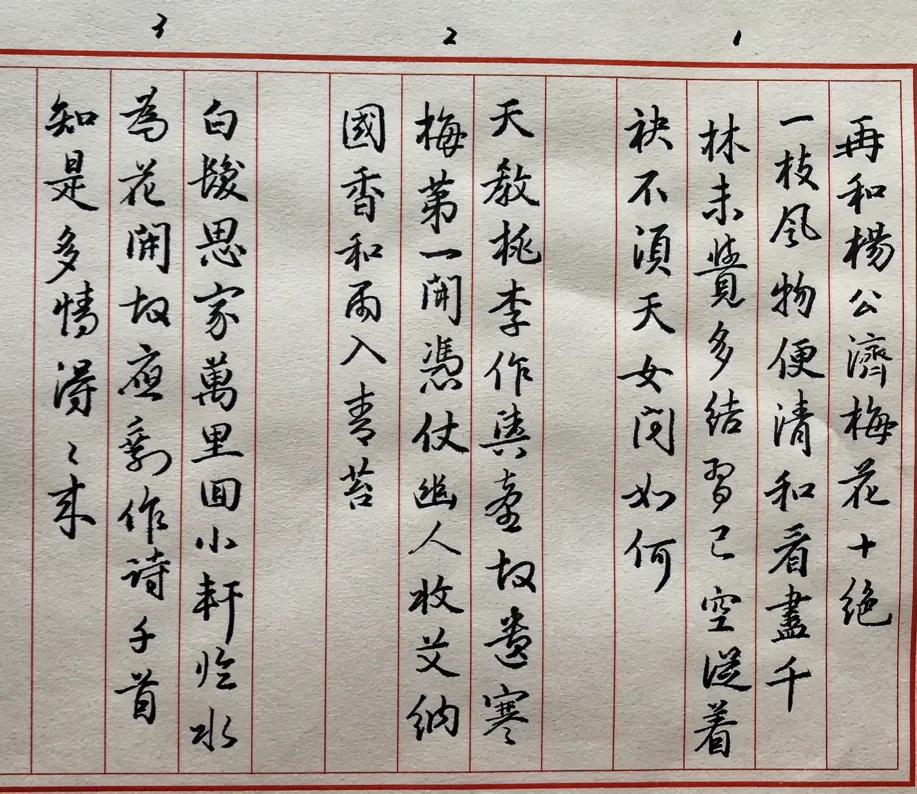 1
再和楊公濟梅花十絕
一枝風物便清和看盡千
林未覺多結習已空從着
袂不須天女問如何
2
天教桃李作輿臺故遣寒
梅第一開憑仗幽人收艾納
國香和雨入青苔
3
白髮思家萬里回小軒臨水
為花開故應剩作詩千首
知是多情得〻來